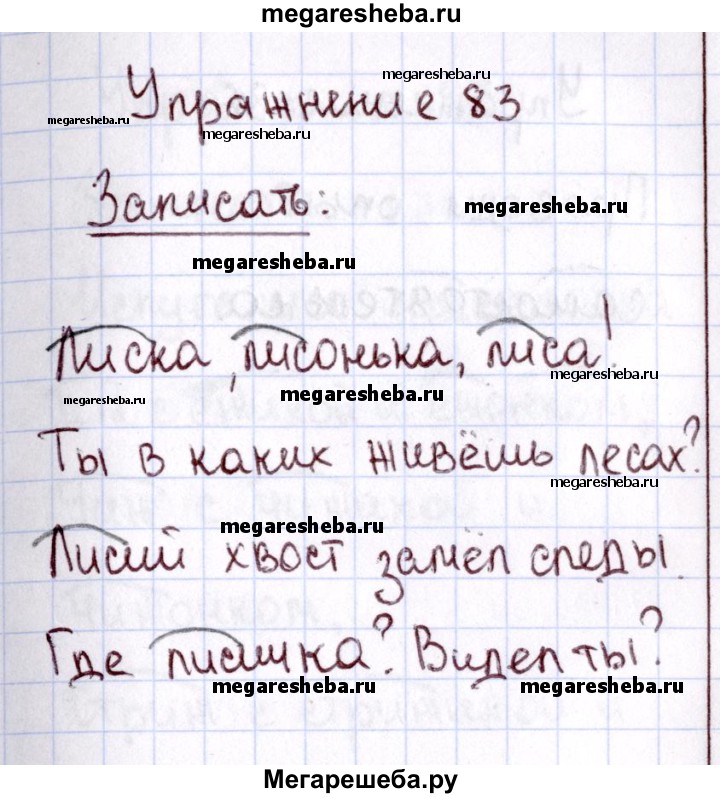 megaresheba.ru
Упражнение 83
megaresheba.ru
megaresheba.ru
megaresheba.ru
Записать:
megaresheba.ru
megaresheba.ru
Лиска, лисонька, лиса!
megaresheba.ru
megaresheba.ru
megaresheba.ru
Ты в каких живёшь лесах?
megaresheba.ru
megaresheba.ru
Лисий хвост замёл следы.
Где лисичка? Видел ты?
megaresheba.ru
megaresheba.ru
Мегарешеба.ру